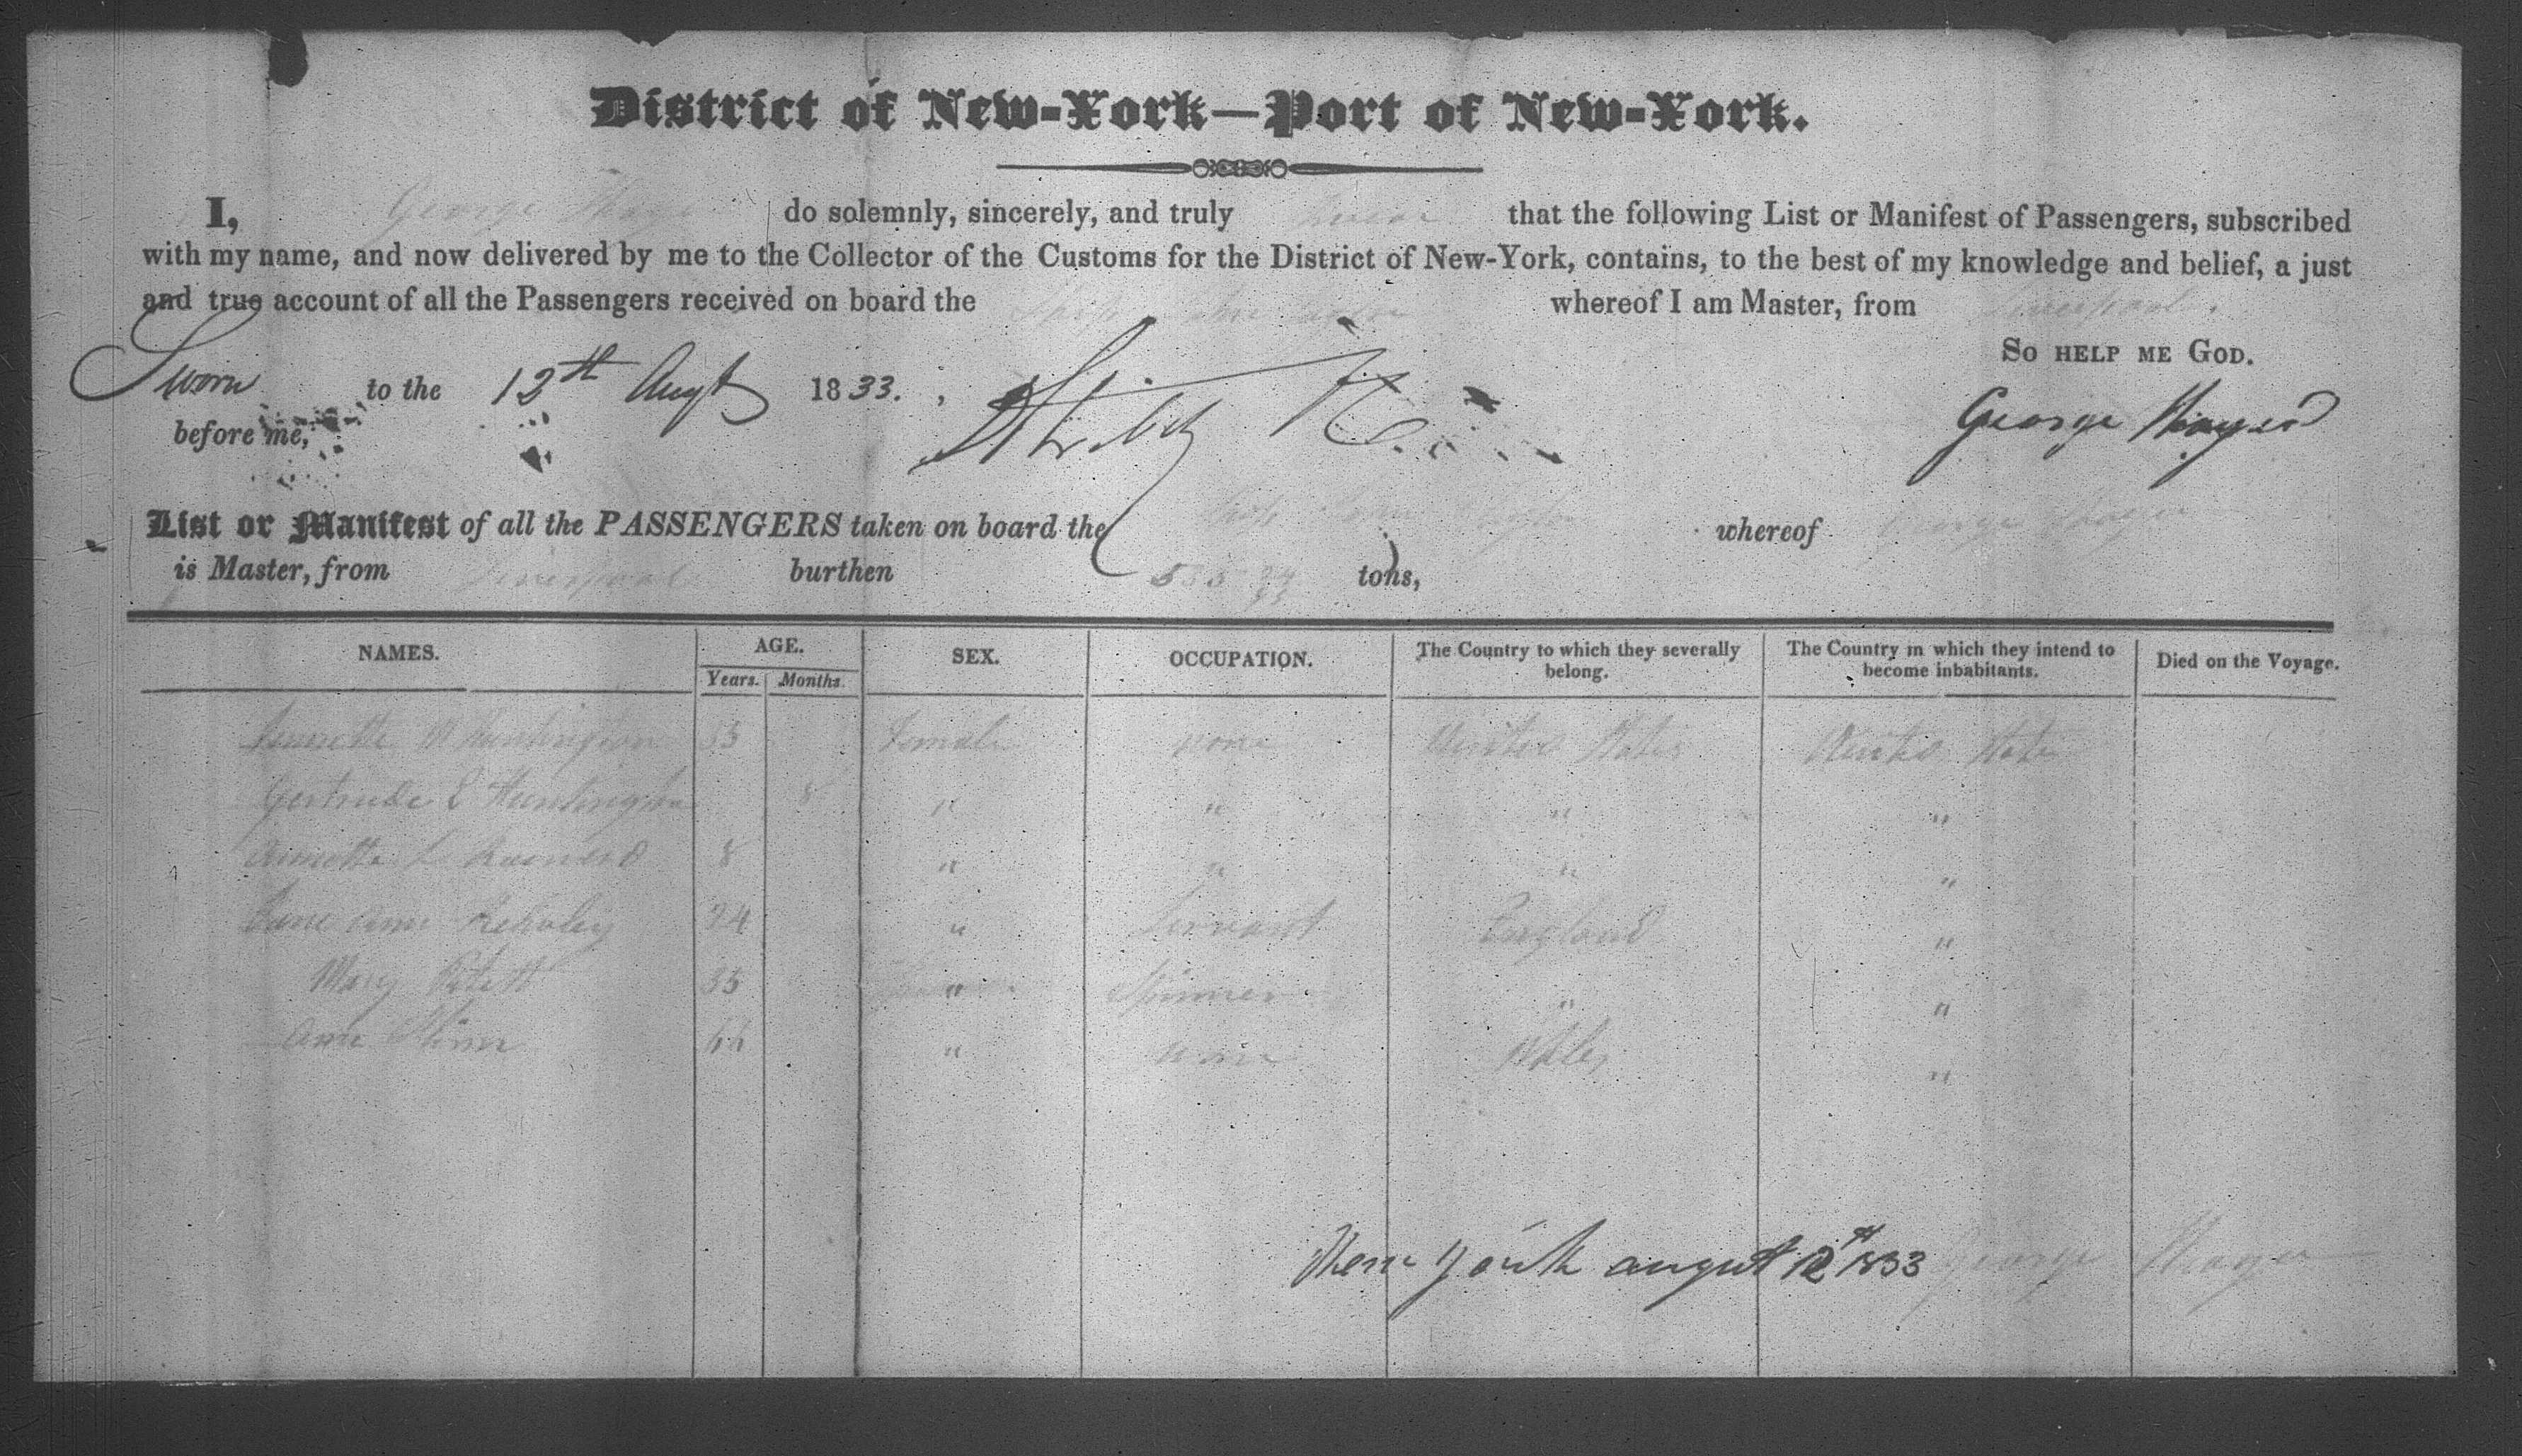 District of New-York—Port of New-York.
I, George do solemnly, sincerely, and truly Swear that the following List or Manifest of Passengers, subscribed
with my name, and now delivered by me to the Collector of the Customs for the District of New-York, contains, to the best of my knowledge and belief, a just
and true account of all the Passengers received on board the Ship whereof I am Master, from Liverpool.
So help me God.
Sworn to the 12th Augt 1833.
before me,
George
List or Manifest of all the PASSENGERS taken on board the Ship whereof George
is Master, from Liverpool burthen tons,
NAMES. AGE. SEX. OCCUPATION. The Country to which they severally belong. The Country in which they intend to become inhabitants. Died on the Voyage.
Years. Months.
Huntington 35 Female none United States United States
Gertrude L Huntington 8 " " " "
Annette L 8 " " " "
Jane Ann 24 " Servant England "
Mary 35 " Spinner " "
Ann 66 " none Wales "
New York august 12th 1833 George